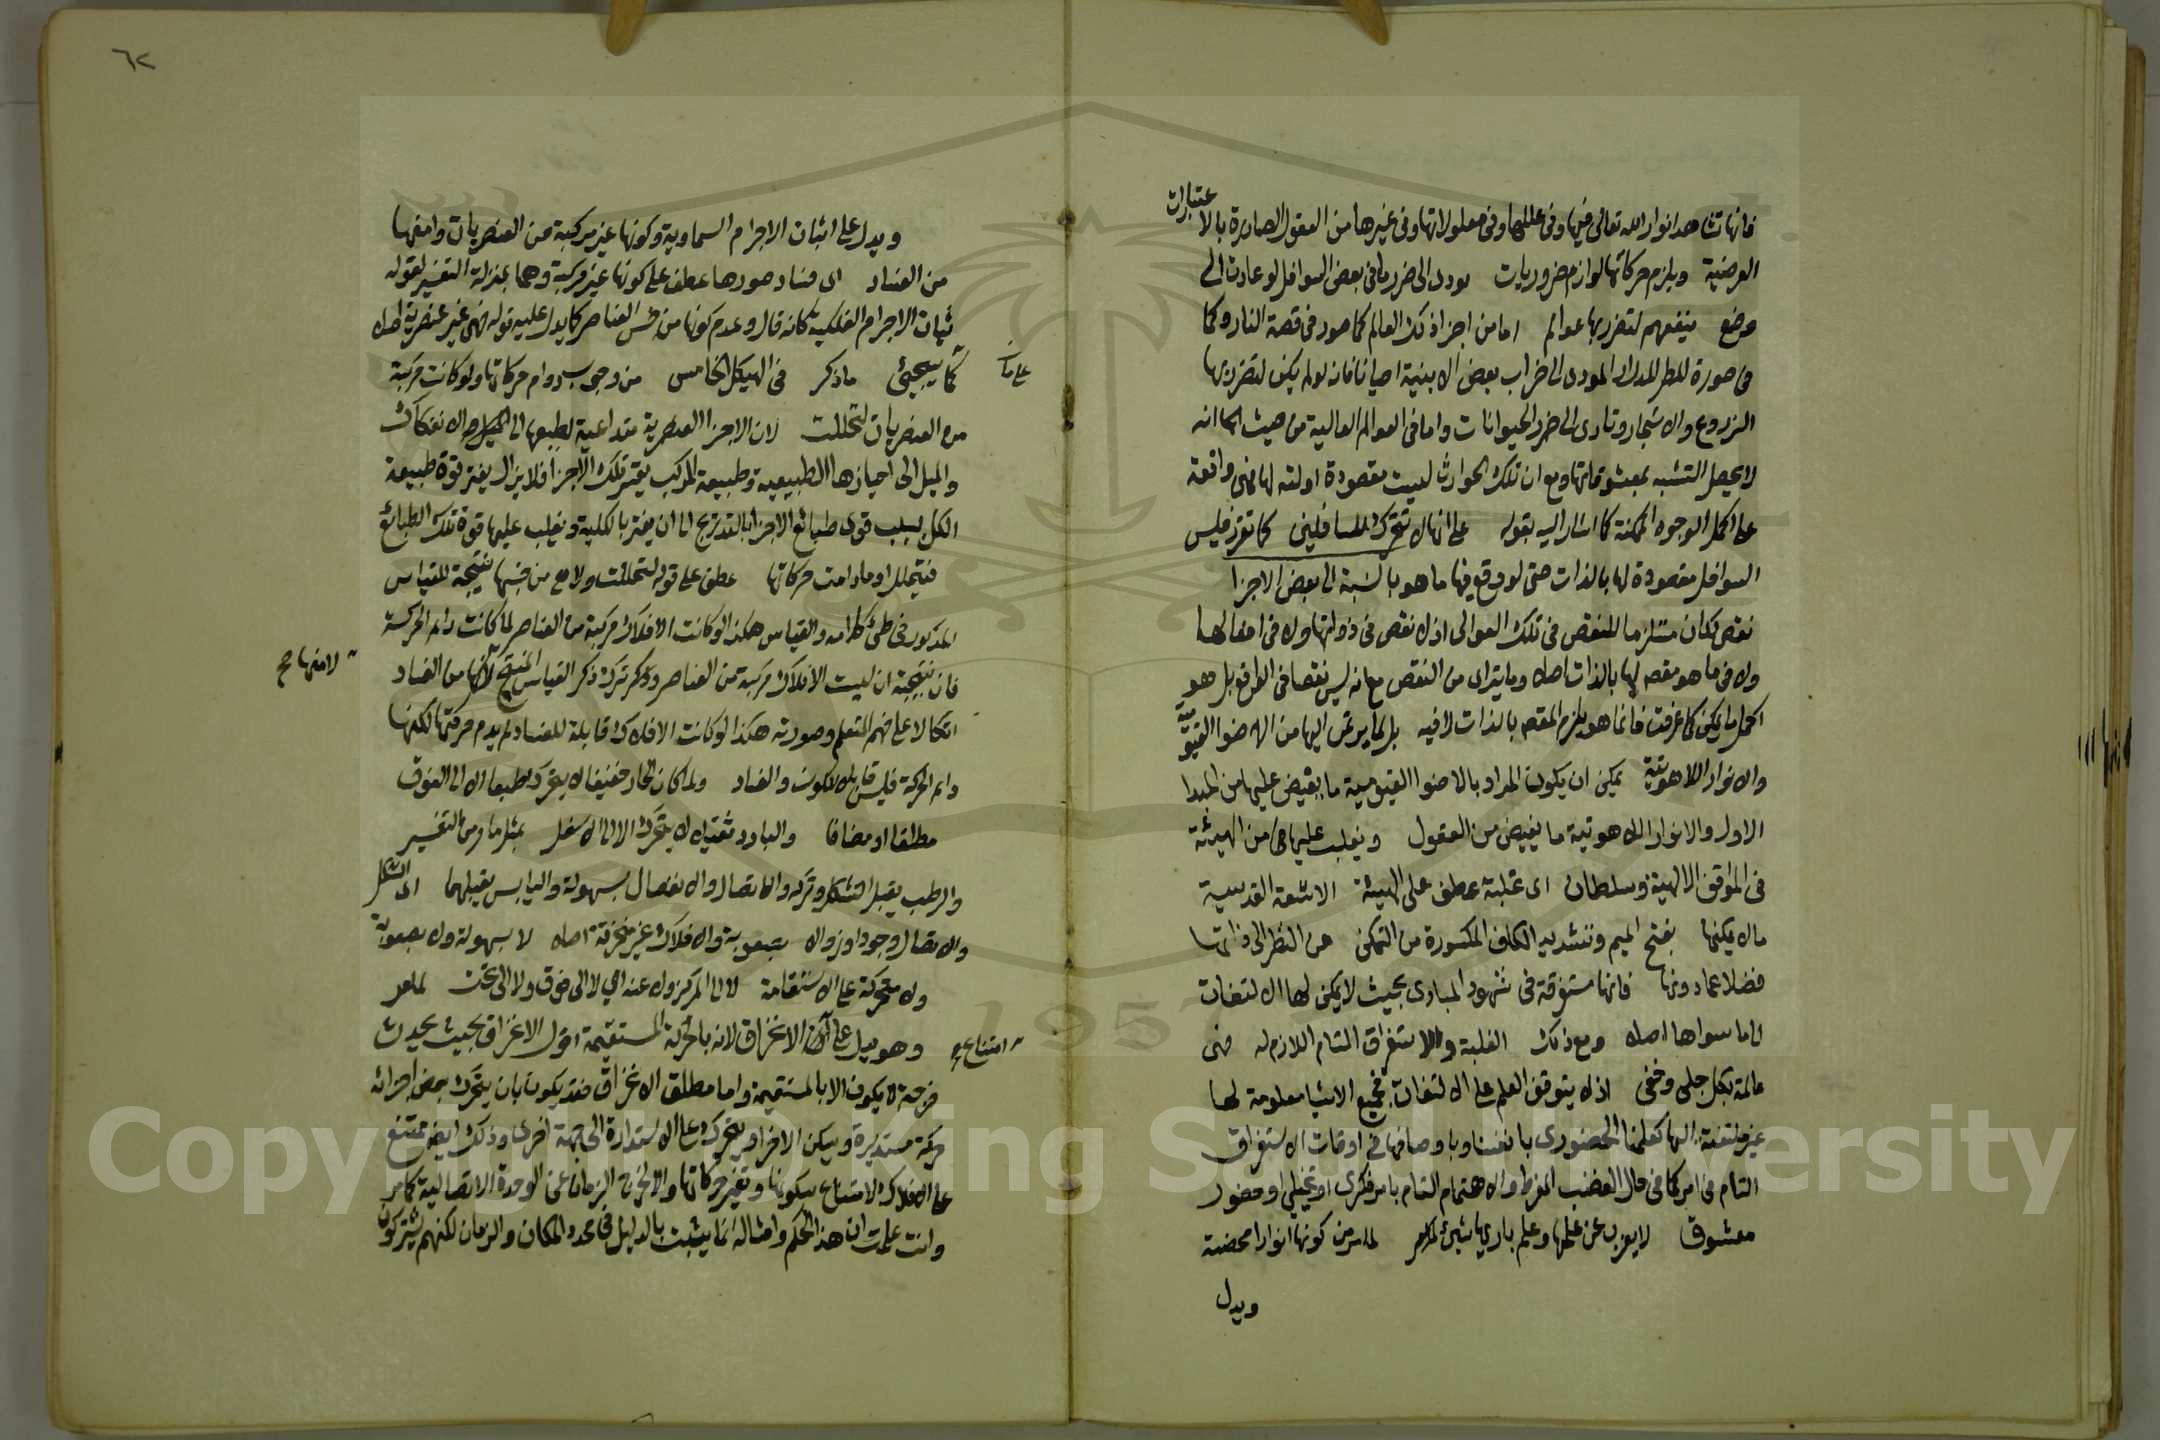 فانها تشاهد انوار الله تعالى فيها وفى عللها وفى معلولاتها وفى غيرها من العقول الصادرة بالا
عتبارات
العرضية ويلزم حركاتها لوازم ضروريات يودى الى ضرر ما فى بعض السوافل لو عادت الى
موضع ينفعهم لتضرر بها عوالم اما من اجزاء ذلك العالم كما صور فى قصة النار وكما
فى صورة المطر المدرار المودى الى خراب بعض الابنية احيانا فانه لو لم يكن لتضرر بها
الزروع والاشجار وتادى الى ضرر الحيوانات واما فى العوالم العالية من حيث انه
لا يحصل التشبه بمعشوقاتها ومع ان تلك الحوادث ليست مقصودة اولية لها فهى واقعة
على اكمل الوجوه الممكنة كما اشار اليه بقوله على انها لا تتحرك للسافلين كما تقرر فليس
السوافل مقصودة لها بالذات حتى لو وقع فيها ما هو بالنسبة الى بعض الاجزا
نقص لكان مستلزما للنقص فى تلك العوالى اذ لا نقص فى ذواتها ولا فى افعالها
ولا فى ما هو مقصد لها بالذات اصلا وما يترائ من النقص مع انه ليس نقصا فى الواقع بل هو
اكمل ما يمكن كما عرفت فانما هو يلزم المقصد بالذات لا فيه بل لما يرتمى اليها من الاضواء القيو
مية
والانوار اللاهوتية يمكن ان يكون المراد بالاضوا القيومية ما يفيض عليها من المبدا
الاول والانوار اللاهوتية ما يفيض من العقول ويغلب عليها من الهيئة
فى المواقف الالهية وسلطان اى غلبة عطف على الهيئة الاشعة القدسية
ما لا يمكنها بفتح الميم وتشديد الكاف المكسورة من التمكن عن النظر الى ذاتها
فضلا عما دونها فانها مستغرقة فى شهود المبادى بحيث لا يمكن لها الالتفات
الى ما سواها اصلا ومع ذلك الغلبة والاستغراق التام اللازم له فهى
عالمة بكل جلى وخفى اذ لا يتوقف العلم على الالتفات فجميع الاشيا معلومة لها
غير ملتفتة اليها كعلمنا الحضورى بانفسنا وباوصافها فى اوقات الاستغراق
التام فى امر كما فى حال الغضب المفرط والاهتمام التام بامر فكرى او تخيلى او حضور
معشوق لا يعزب عن علمها وعلم باريها شئ لما مر من كونها انوارا محضة
ويدل
٦٢
ويدل على اثبات الاجرام السماوية وكونها غير مركبة من العنصريات وامنها
من الفساد اى فساد صورها عطف على كونها غير مركبة وهما بمنزلة التفسير لقوله
ثبات الاجرام الفلكية كانه قال وعدم كونها من جنس العناصر كما يدل عليه قوله فهى غير عنصرية اصلا
كما سيجئ ما ذكر فى الهيكل الخامس من وجوب دوام حركاتها ولو كانت مركبة
على ما
من العنصريات لتحللت لان الاجزا العنصرية متداعية لطبعها الى الميل الانفكاك
والميل الى احيازها الطبيعية وطبيعة المركب يقسر تلك الاجزا فلا يزال يفتر قوة طبيعة
الكل بسبب قوى طبائع الاجزا بالتدريج الى ان يفتر بالكلية ويغلب عليها قوة تلك الطبائع
فيتحلل وما دامت حركاتها عطف على قوله لتحللت ولا مع من فيها نتيجة للقياس
المذكور فى طى كلامه والقياس هكذا لو كانت الافلاك مركبة من العناصر لما كانت دائم الحركة
فان نتيجة ان ليست الافلاك مركبة من العناصر وترك ذكر القياس المنتج لكونها من الفساد
لامنها صح
اتكالا على فهم المتعلم وصورته هكذا لو كانت الافلاك قابلة للفساد لم يدم حركتها لكنها
دائم الحركة فليس قابلا للكون والفساد ولما كان الحار خفيفا لا يتحرك بطبعه الا الى الفوق
مطلقا او مضافا والبارد ثقيلا لا يتحرك الا الى الاسفل بمثل ما مر من التفسير
والرطب يقبل التشكل وتركه والاتصال والانفصال بسهولة واليابس يقبلهما اى التشكل
والاتصال وجودا وزوالا بصعوبة والافلاك غير منخرقة اصلا لا بسهولة ولا بصعوبة
ولا متحركة على الاستقامة لا الى المركز ولا عنه اى لا الى فوق ولا الى تحت لما مر
وهو يدل على الانخراق لانه بالحركة المستقيمة اقول الانخراق بحيث يحدث
امتناع صح
فرجة لا يكون الا بالمستقيمة واما مطلق الانخراق فقد يكون بان يتحرك بعض اجزائه
حركة مستديرة ويسكن الاخر او يتحرك على الاستدارة الى جهة اخرى وذلك ايضا ممتنع
على الافلاك لامتناع سكونها وتغير حركاتها والا لخرج الزمان عن الوحدة الاتصالية كما مر
وانت علمت ان هذا الحكم وامثاله انما يثبت بالدليل فى محدد المكان والزمان لكنهم يشتركون
Copyright © King Saud University
1957